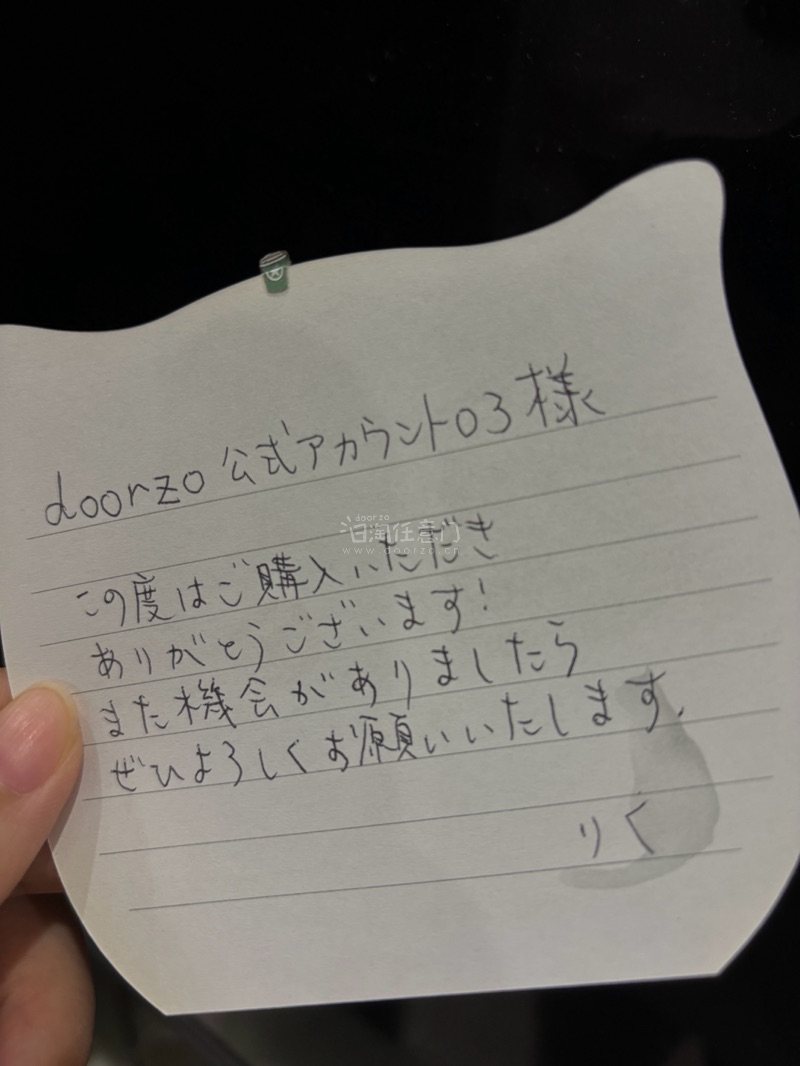 doorzo 公式アカウント03様
doorzo
日淘任意门
www.doorzo.cn
この度はご購入いただき
ありがとうございます!
また機会がありましたら
ぜひよろしくお願いいたします。
りく